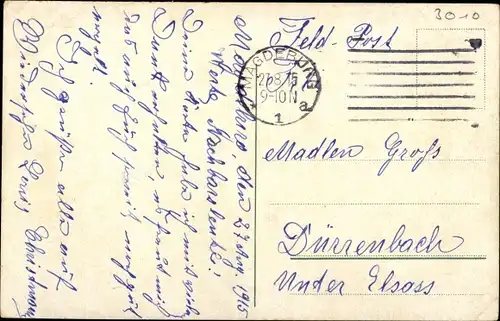 3010
Feld-Post
MAGDEBURG
27.8.15
9-10 N
1 a
Madlen Groß
Dürrenbach
Unter Elsass
Magdeburg, den 27 Aug. 1915
Werte Nachbarsleute!
Deine Karte habe ich mit viel
Dank erhalten,
und auf Euch noch gut
Ich grüße alle auf
Wiedersehn Louis Christmann